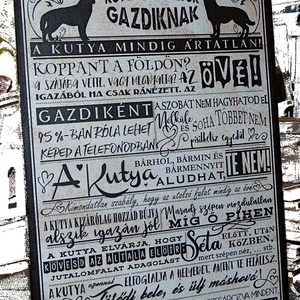 GAZDIKNAK
A KUTYA MINDIG ÁRTATLAN!
KOPPANT A FÖLDÖN?
A SZÁJÁBA VETTE, VAGY MEGNYALTA? AZ ÖVÉ!
IGAZÁBÓL HA CSAK RÁNÉZETT, AZ
GAZDIKÉNT
A SZOBÁT NEM HAGYHATOD EL
Nélküle és
SOHA TÖBBET NEM
pisilhetsz egyedül
95%-BAN RÓLA LEHET
KÉPED A TELEFONODBAN
A Kutya
BÁRHOL, BÁRMIN ÉS
BÁRMENNYIT
ALUDHAT,
TE NEM!
Kimondatlan szabály, hogy az utolsó falat mindig az övé
A KUTYA KIZÁRÓLAG HOZZÁD BÚJVA
alszik igazán jól
Maradj szépen mozdulatlan
MÍG Ő PIHEN
A KUTYA ELVÁRJA, HOGY
KÖVESD AZ ÁLTALA ELŐÍRT
JUTALOMFALAT ADAGOLÁST
Séta
ELŐTT, UTÁN
KÖZBEN,
mert szépen néz, ... stb.
A KUTYA
ELFOGLALJA A HELYEDET, AMINT TE FELÁLLSZ.
bele, és ülj máshová!